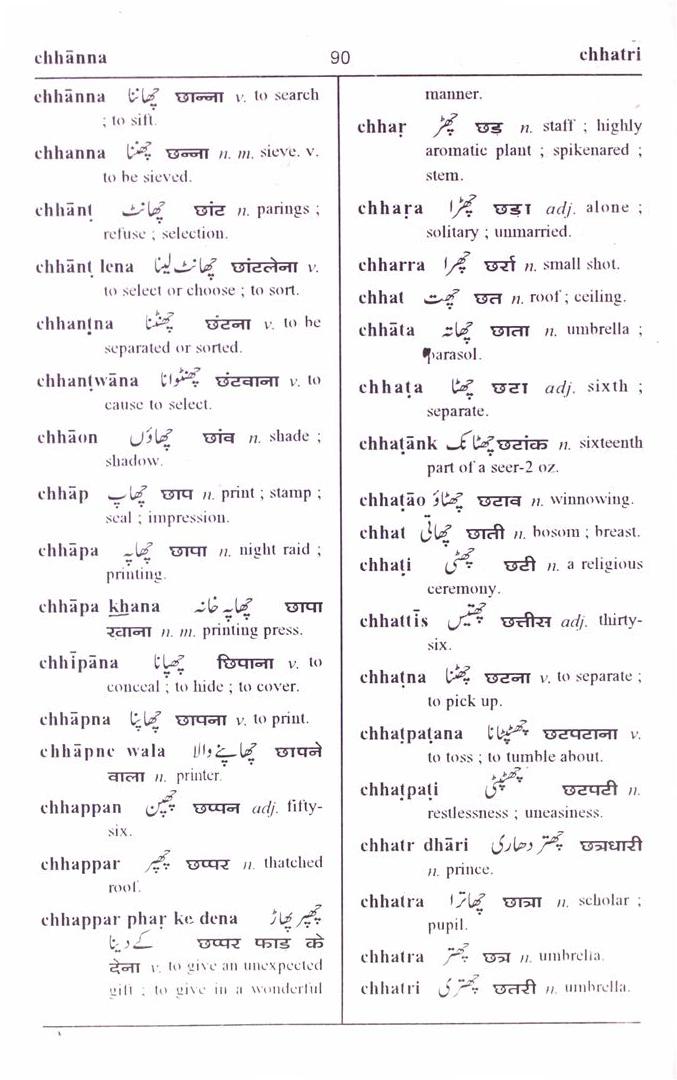 chhānna
90
chhatri
chhānna چھاننا छान्ना v. to search
; to sift.
chhanna چھننا छन्ना n. m. sieve. v.
to be sieved.
chhānṭ چھانٹ छांट n. parings ;
refuse ; selection.
chhānṭ lena چھانٹ لینا छांटलेना v.
to select or choose ; to sort.
chhanṭna چھنٹنا छंटना v. to be
separated or sorted.
chhanṭwāna چھنٹوانا छंटवाना v. to
cause to select.
chhāon چھاؤں छांव n. shade ;
shadow.
chhāp چھاپ छाप n. print ; stamp ;
seal ; impression.
chhāpa چھاپہ छापा n. night raid ;
printing.
chhāpa khana چھاپہ خانہ छापा
खाना n. m. printing press.
chhipāna چھپانا छिपाना v. to
conceal ; to hide ; to cover.
chhāpna چھاپنا छापना v. to print.
chhāpne wala چھاپنے والا छापने
वाला n. printer.
chhappan چھپن छप्पन adj. fifty-
six.
chhappar چھپر छप्पर n. thatched
roof.
chhappar phaṛ ke dena چھپر پھاڑ
کے دینا छप्पर फाड के
देना v. to give an unexpected
gift ; to give in a wonderful
manner.
chhaṛ چھڑ छड़ n. staff ; highly
aromatic plant ; spikenared ;
stem.
chhaṛa چھڑا छड़ा adj. alone ;
solitary ; unmarried.
chharra چھرا छर्रा n. small shot.
chhat چھت छत n. roof ; ceiling.
chhāta چھاتہ छाता n. umbrella ;
parasol.
chhaṭa چھٹا छटा adj. sixth ;
separate.
chhaṭānk چھٹانک छटांक n. sixteenth
part of a seer-2 oz.
chhaṭāo چھٹاؤ छटाव n. winnowing.
chhat چھاتی छाती n. bosom ; breast.
chhaṭi چھٹی छटी n. a religious
ceremony.
chhattīs چھتیس छत्तीस adj. thirty-
six.
chhaṭna چھٹنا छटना v. to separate ;
to pick up.
chhaṭpaṭana چھٹپٹانا छटपटाना v.
to toss ; to tumble about.
chhaṭpaṭi چھٹپٹی छटपटी n.
restlessness ; uneasiness.
chhatr dhāri چھتر دھاری छत्रधारी
n. prince.
chhatra چھاترا छात्रा n. scholar ;
pupil.
chhatra چھتر छत्र n. umbrella.
chhatri چھتری छतरी n. umbrella.